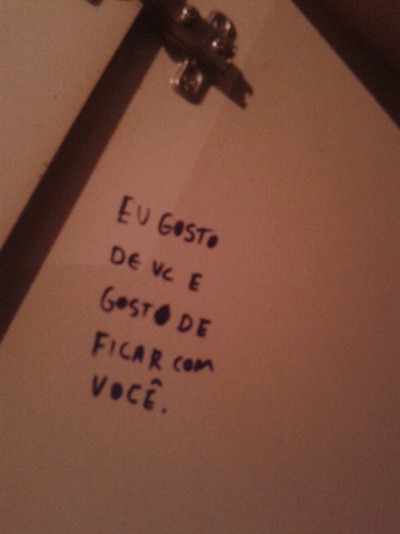 EU GOSTO
DE VC E
GOSTO DE
FICAR COM
VOCÊ.